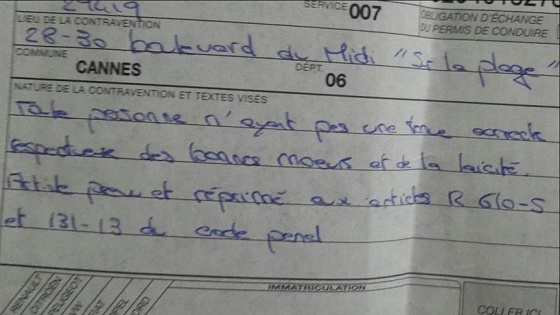 SERVICE 007
LIEU DE LA CONTRAVENTION
OBLIGATION D'ÉCHANGE
DU PERMIS DE CONDUIRE
28-30 boulevard du Midi "Sr la plage"
COMMUNE CANNES DÉPT. 06
NATURE DE LA CONTRAVENTION ET TEXTES VISÉS
Toute personne n'ayant pas une tenue correcte
respectueuse des bonnes moeurs et de la laïcité.
Article prévu et réprimé aux articles R 610-5
et 131-13 du code penal
IMMATRICULATION
RENAULT
CITROEN
PEUGEOT
COLLER ICI